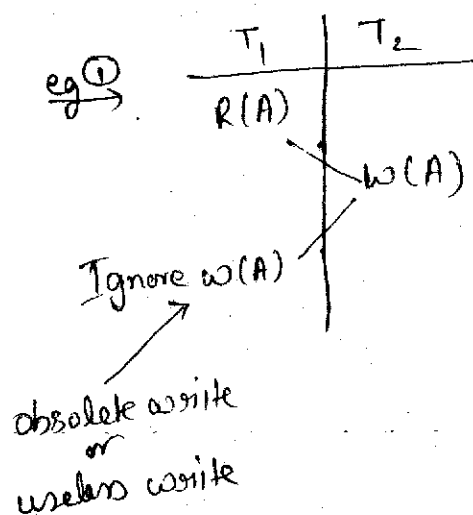 T₁ T₂
eg ①
R(A)
W(A)
Ignore W(A)
obsolete write
or
useless write